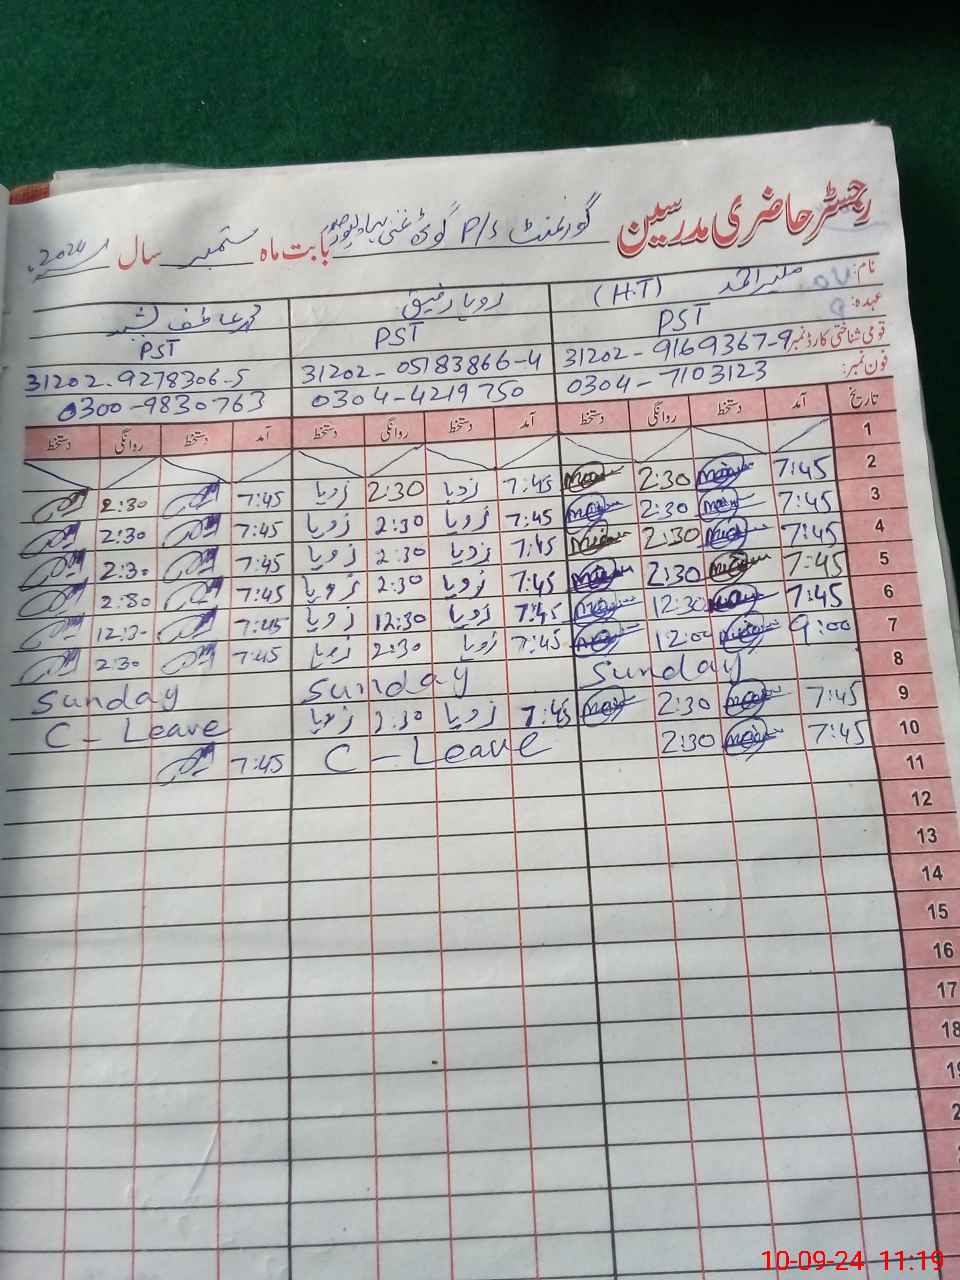 رجسٹر حاضری مدرسین گورنمنٹ P/S گوٹھ غنی بہاولپور بابت ماہ ستمبر سال 2024
نام: منیر احمد (H.T) زویا رفیق محمد عاطف بشیر
عہدہ: PST PST PST
قومی شناختی کارڈ نمبر 31202-9169367-9 31202-05183866-4 31202-9278306-5
فون نمبر: 0304-7103123 0304-4219750 0300-9830763
تاریخ آمد دستخط روانگی دستخط آمد دستخط روانگی دستخط آمد دستخط روانگی دستخط
1
2 7:45 2:30 7:45 زویا 2:30 زویا 7:45 2:30
3 7:45 2:30 7:45 زویا 2:30 زویا 7:45 2:30
4 7:45 2:30 7:45 زویا 2:30 زویا 7:45 2:30
5 7:45 2:30 7:45 زویا 2:30 زویا 7:45 2:80
6 7:45 12:30 7:45 زویا 12:30 زویا 7:45 12:3-
7 9:00 12:00 7:45 زویا 2:30 زویا 7:45 2:30
8 Sunday Sunday Sunday
9 7:45 2:30 7:45 زویا 2:30 زویا C-Leave
10 7:45 2:30 C-Leave 7:45
11
12
13
14
15
16
17
18
10-09-24 11:19